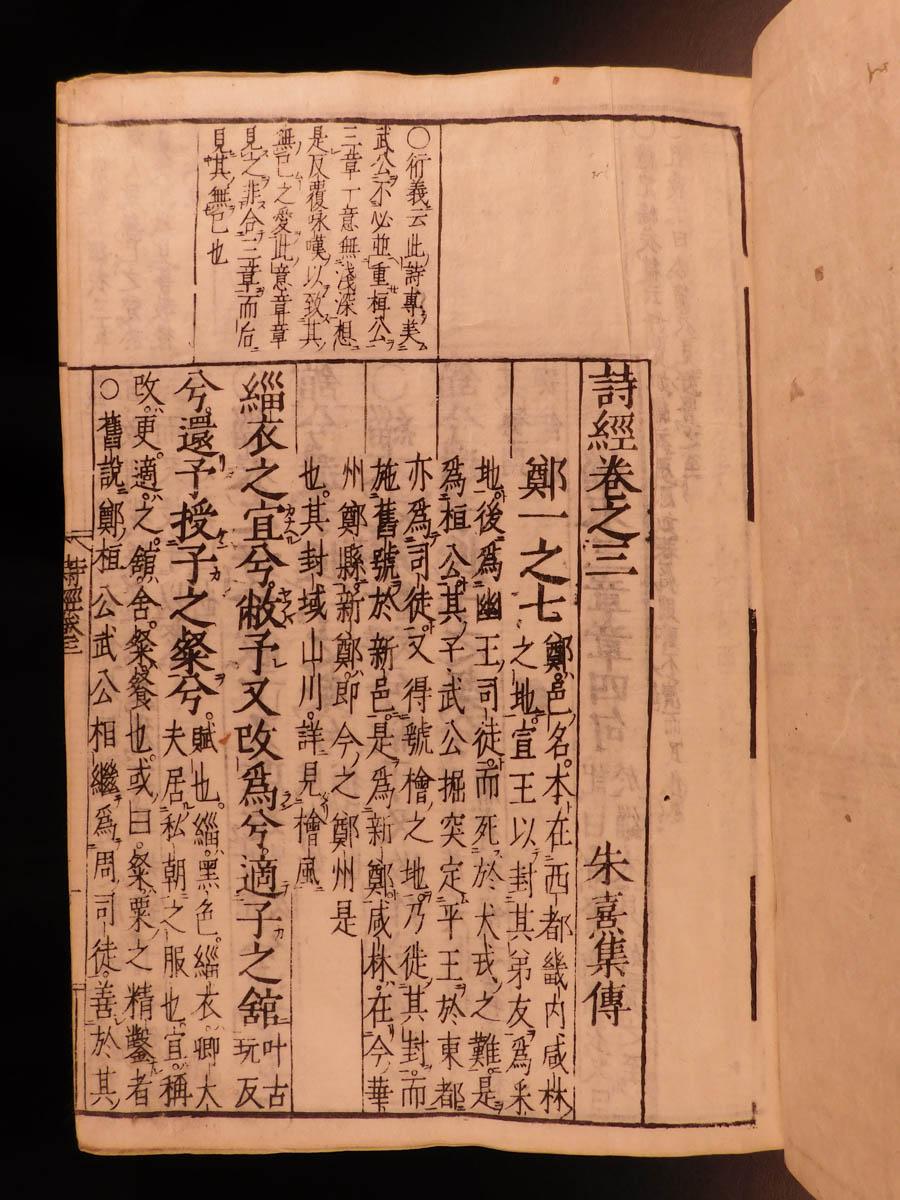 〇衍義云此詩專美
武公不必並重桓公
三章丁意無淺深想
是反覆咏嘆以致其
無已之愛此意章章
見之非合三章而后
見其無已也
詩經卷之三　朱熹集傳
鄭一之七　鄭邑名。本在西都畿内咸林
之地。宣王以封其弟友爲采
地。後爲幽王司徒。而死於犬戎之難。是
爲桓公。其子武公掘突定平王於東都
亦爲司徒。又得號檜之地。乃徙其封。而
施舊號於新邑。是爲新鄭。咸林。在今華
州鄭縣。新鄭。即今之鄭州是
也。其封域山川。詳見檜風
緇衣之宜兮。敝予又改爲兮。適子之舘
叶古
玩反
兮。還予授子之粲兮。
賦也。緇。黑色。緇衣。卿大
夫居私朝之服也。宜。稱
改。更。適。之。舘。舍。粲。餐也。或曰。粲。粟之精鑿者
〇舊說。鄭桓公武公相繼爲周司徒。善於其
詩經卷三